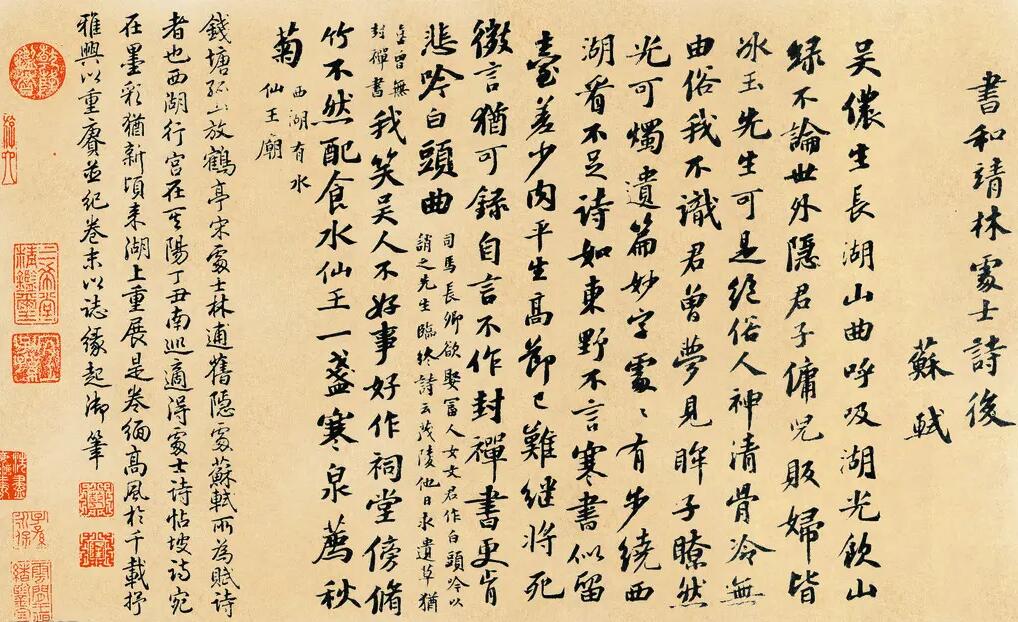 書和靖林處士詩後
蘇軾
吳儂生長湖山曲呼吸湖光飲山
綠不論世外隱君子傭兒販婦皆
冰玉先生可是絕俗人神清骨冷無
由俗我不識君曾夢見眸子瞭然
光可燭遺篇妙字處〻有步繞西
湖看不足詩如東野不言寒書似留
臺差少肉平生高節已難繼將死
微言猶可錄自言不作封禪書更肯
悲吟白頭曲
司馬長卿欲娶富人女文君作白頭吟以
誚之先生臨終詩云茂陵他日求遺草猶
喜曾無
封禪書
我笑吳人不好事好作祠堂傍脩
竹不然配食水仙王一盞寒泉薦秋
菊
西湖有水
仙王廟
錢塘孤山放鶴亭宋處士林逋舊隱處蘇軾所為賦詩
者也西湖行宮在其陽丁丑南巡適得處士詩帖坡詩宛
在墨彩猶新頃來湖上重展是卷緬高風於千載抒
雅興以重賡並紀卷末以誌緣起御筆
乾隆鑑賞
三希堂
精鑑璽
宜子孫